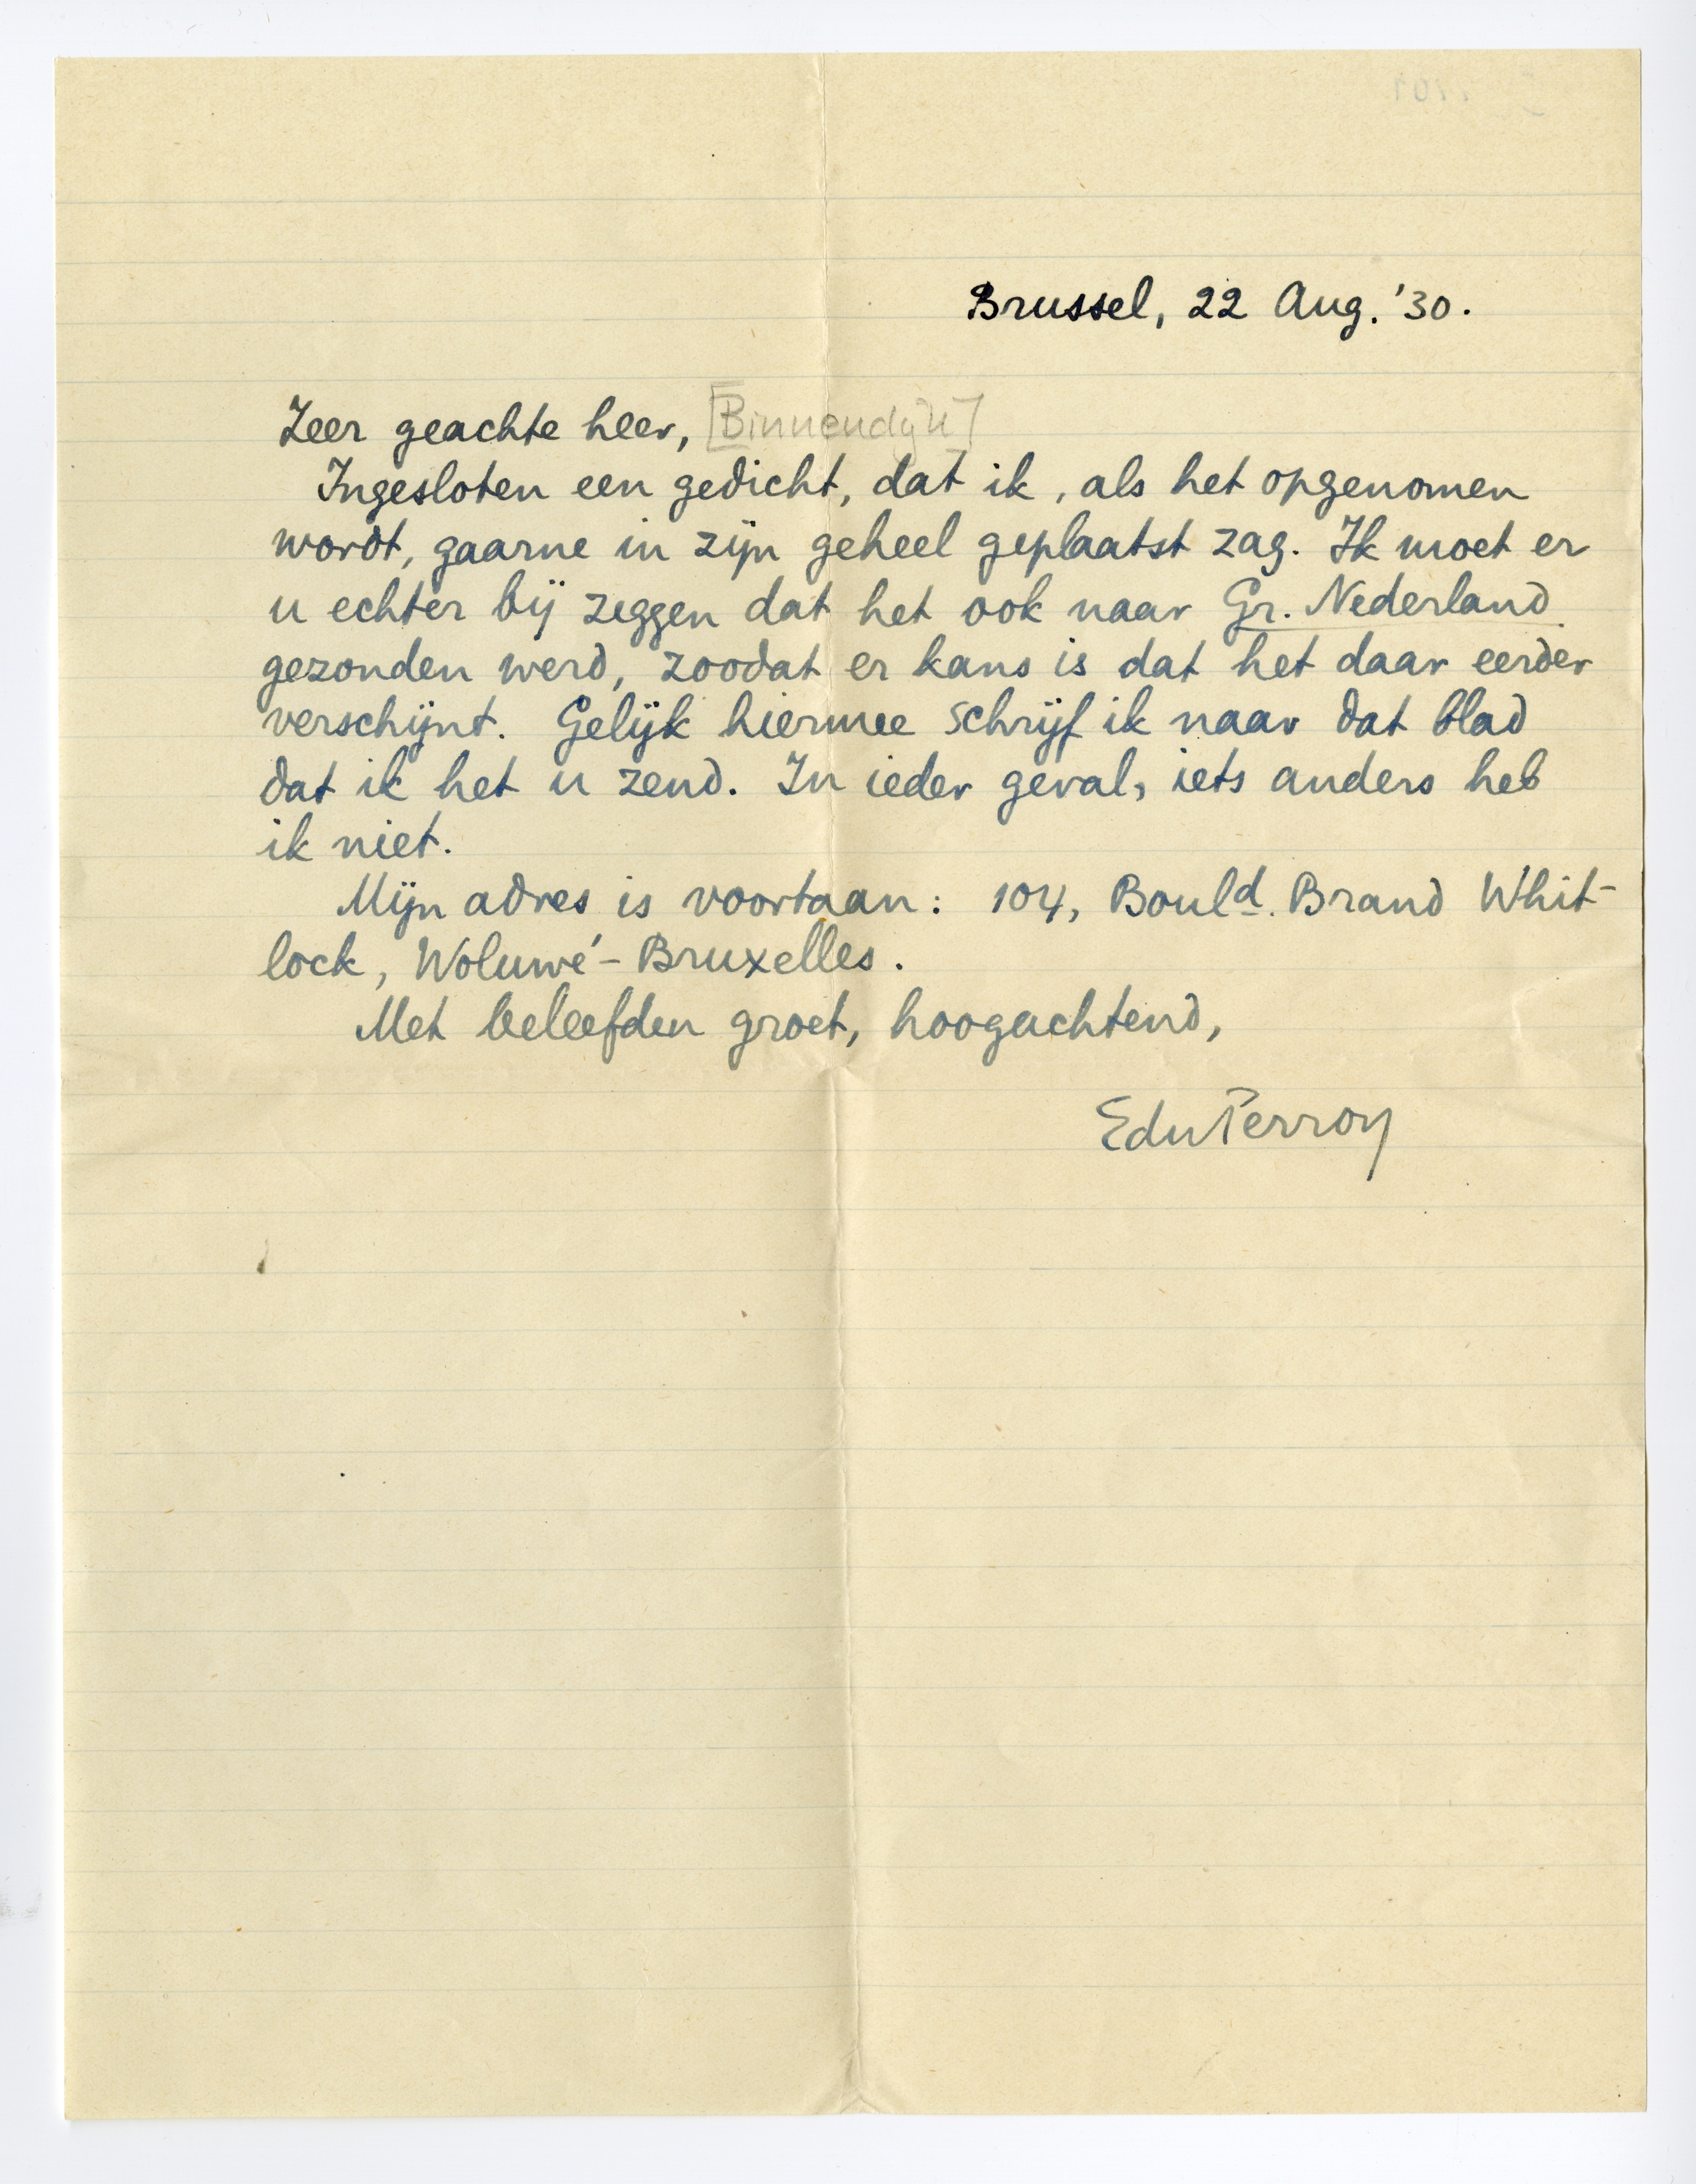 Brussel, 22 Aug. '30.
Zeer geachte heer, [Binnendijk]
Ingesloten een gedicht, dat ik, als het opgenomen
wordt, gaarne in zijn geheel geplaatst zag. Ik moet er
u echter bij zeggen dat het ook naar Gr. Nederland
gezonden werd, zoodat er kans is dat het daar eerder
verschijnt. Gelijk hiermee schrijf ik naar dat blad
dat ik het u zend. In ieder geval, iets anders heb
ik niet.
Mijn adres is voortaan: 104, Bould. Brand Whit-
lock, Woluwé-Bruxelles.
Met beleefden groet, hoogachtend,
EduPerron